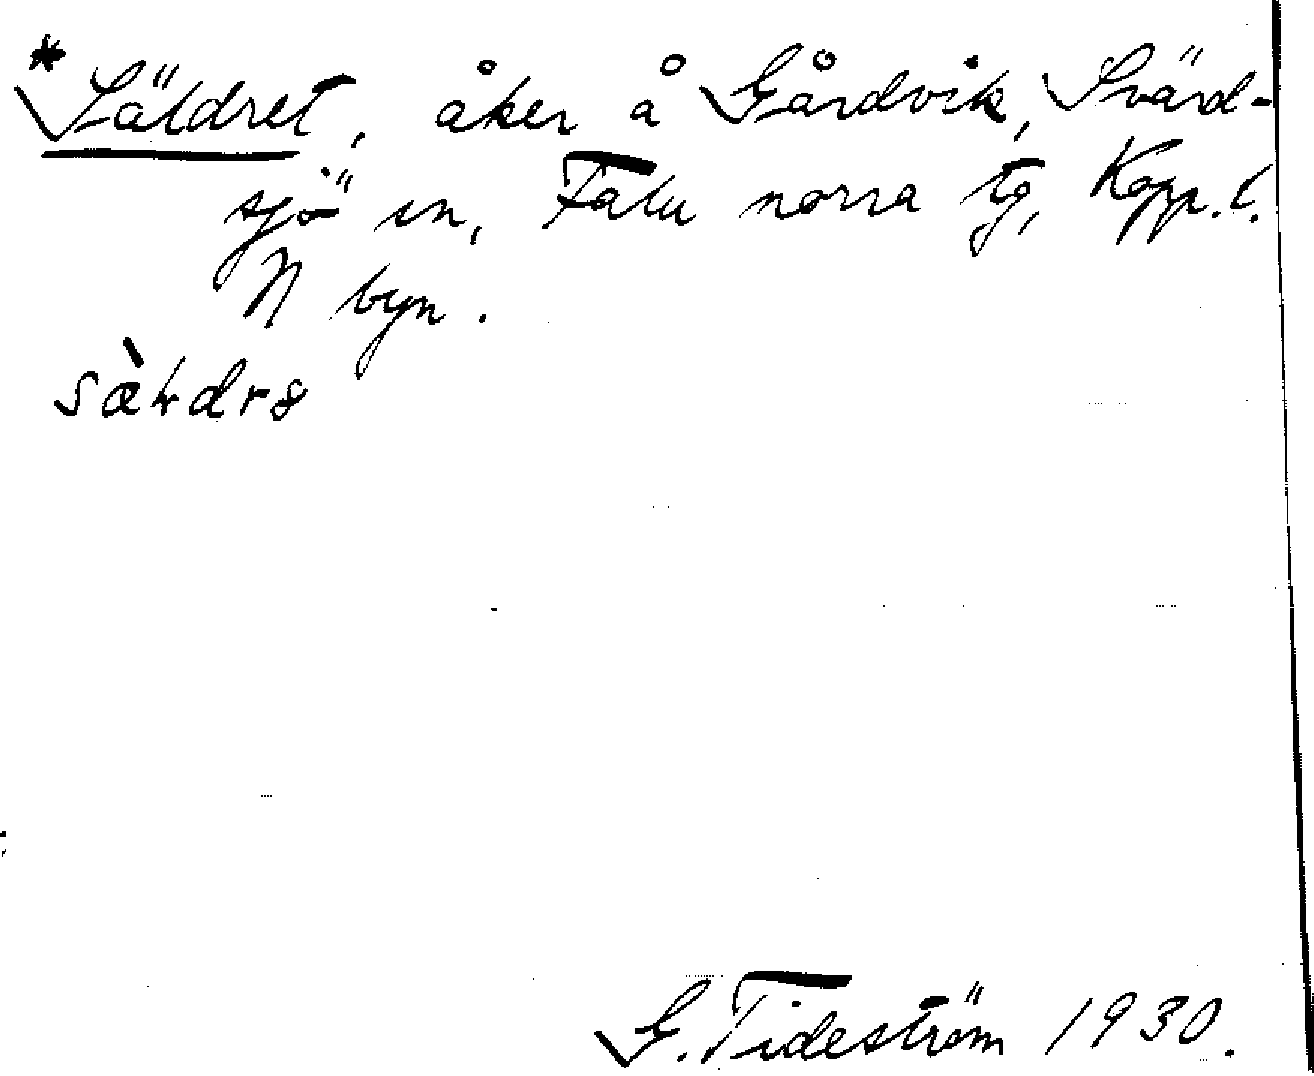 *Säldret, åker å Gårdvik, Svärd-
sjö sn, Falu norra tg, Kopp. l.
N byn.
sàldrə
G. Tideström 1930.